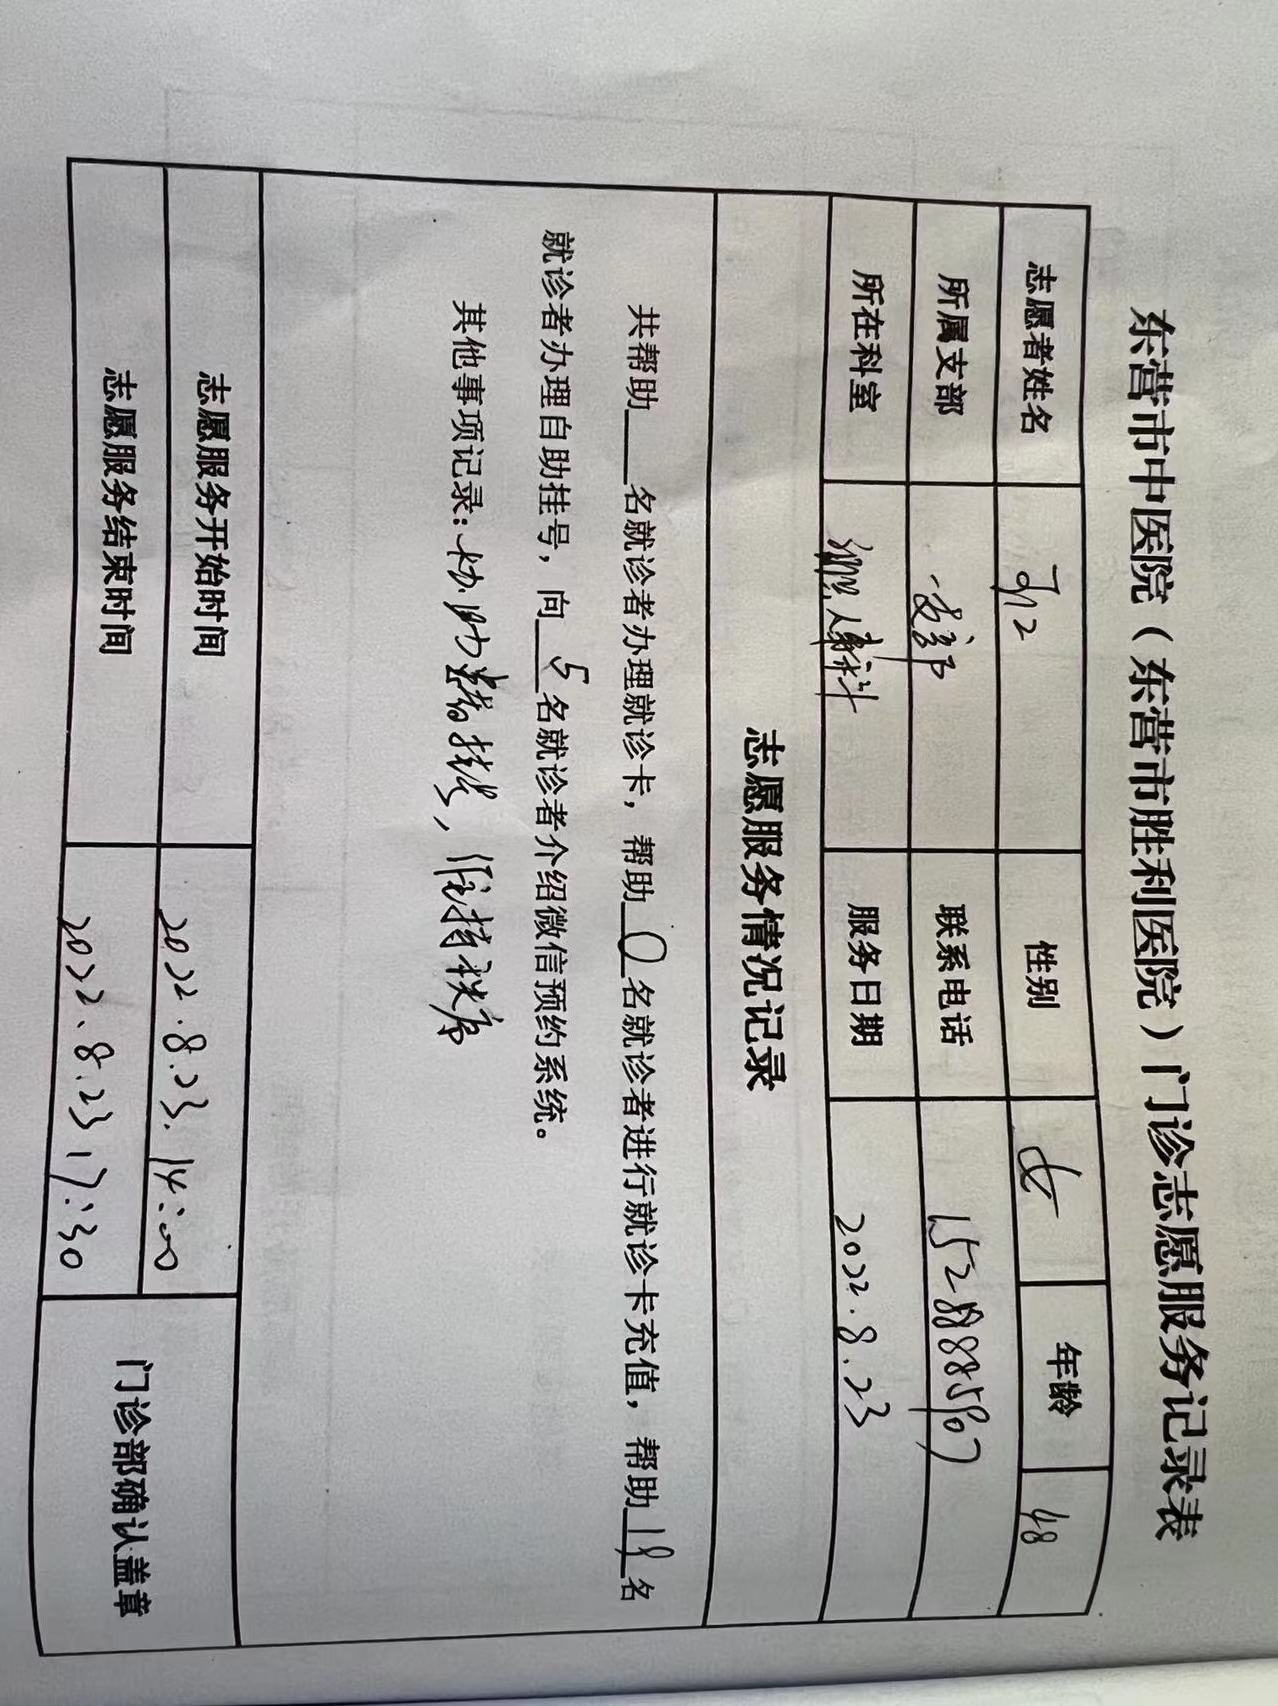 东营市中医院（东营市胜利医院）门诊志愿服务记录表
志愿者姓名 性别 女 年龄 48
所属支部 联系电话
所在科室 服务日期 2022.8.23
志愿服务情况记录
共帮助 名就诊者办理就诊卡，帮助 0 名就诊者进行就诊卡充值，帮助 名
就诊者办理自助挂号，向 5 名就诊者介绍微信预约系统。
其他事项记录：协助 ，维持秩序
志愿服务开始时间 2022.8.23. 14:00
志愿服务结束时间 2022.8.23 17:30
门诊部确认盖章